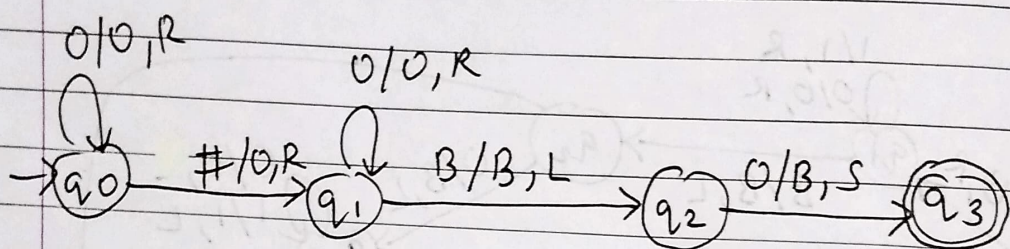 0/0, R
0/0, R
q0
#/0, R
q1
B/B, L
q2
0/B, S
q3